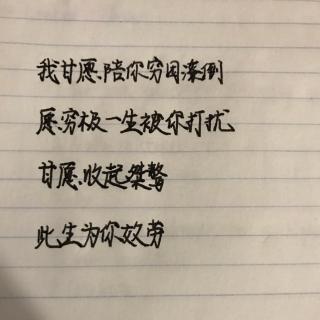 我甘愿陪你穷困潦倒
愿穷极一生被你打扰
甘愿收起桀骜
此生为你效劳